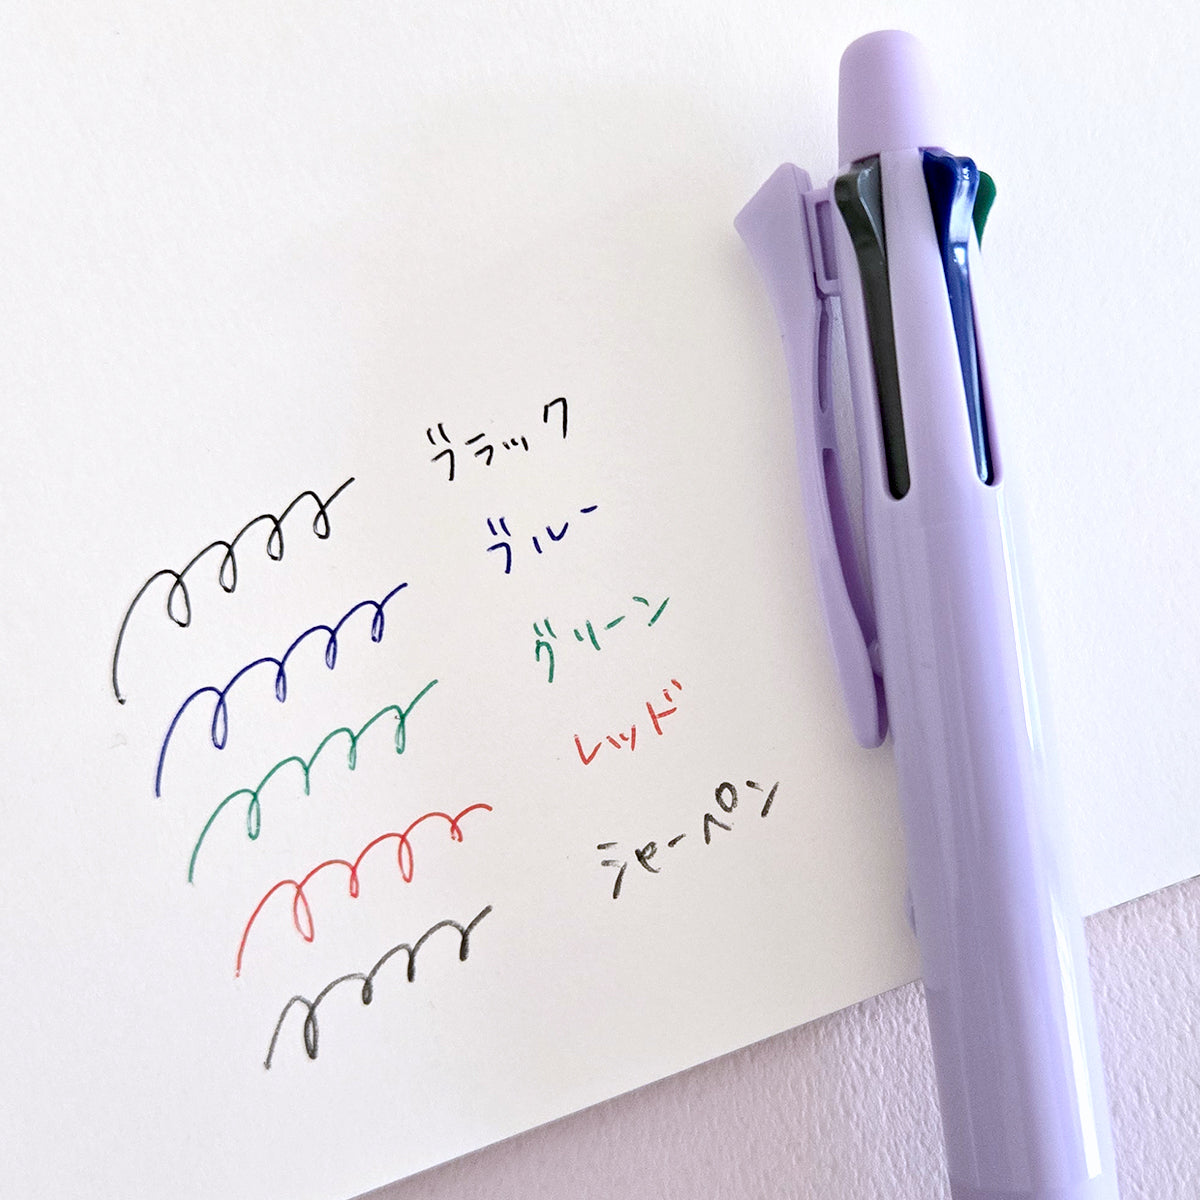 ブラック
ブルー
グリーン
レッド
シャーペン